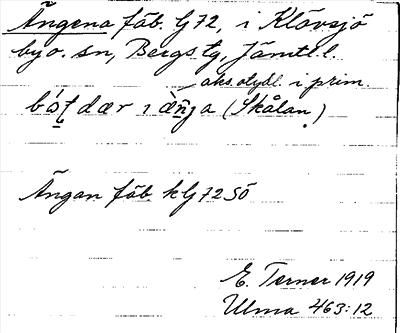 Ängena fäb. G 72, i Klövsjö
byo. sn, Bergs tg, Jämtl. l.
aks. otydl. i prim.
bo̱ʹt dær ı æ̀ṉ̃ja (Skålan.)
Ängan fäb kG 72 SÖ
E. Terner 1919
Ulma 463:12